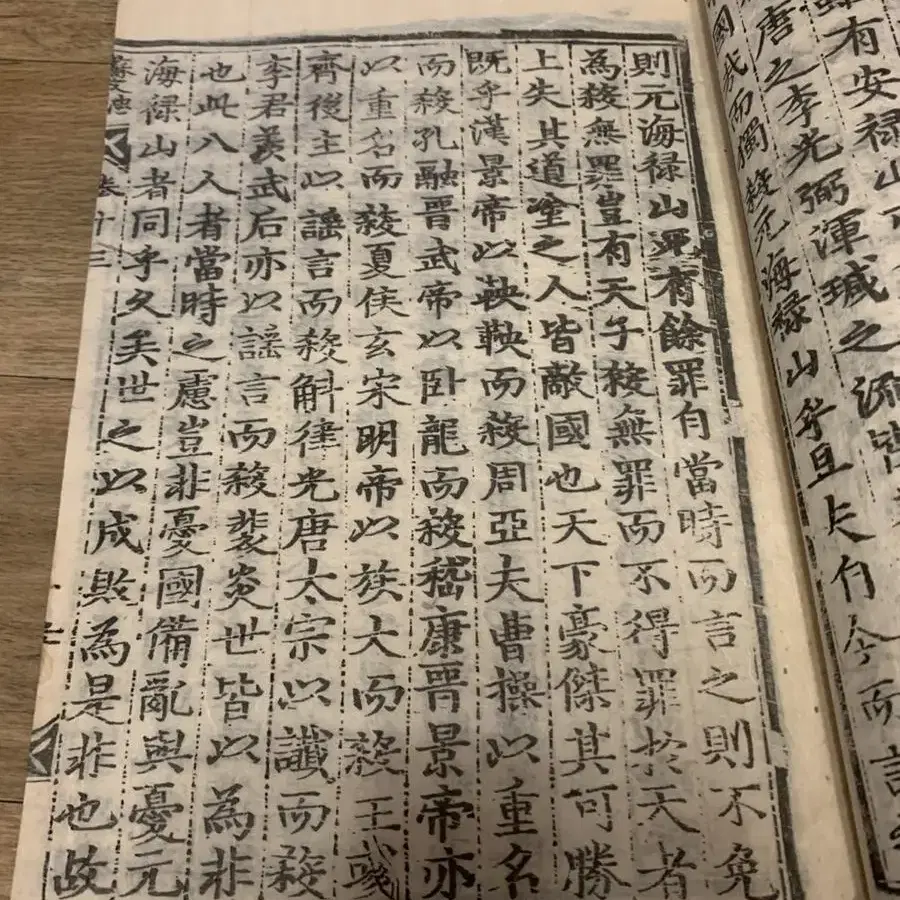 有安禄山
唐之李光弼渾瑊之流皆
國哉而獨殺元海禄山乎且夫自今而言
則元海禄山死有餘罪自當時而言之則不免
為殺無罪豈有天子殺無罪而不得罪於天者
上失其道塗之人皆敵國也天下豪傑其可勝
既乎漢景帝以鞅鞅而殺周亞夫曹操以重名
而殺孔融晋武帝以卧龍而殺嵇康晋景帝亦
以重名而殺夏侯玄宋明帝以族大而殺王彧
齊後主以謡言而殺斛律光唐太宗以讖而殺
李君羨武后亦以謡言而殺裴炎世皆以為非
也此八人者當時之慮豈非憂國備亂與憂元
海禄山者同乎久矣世之以成敗為是非也故
卷十三